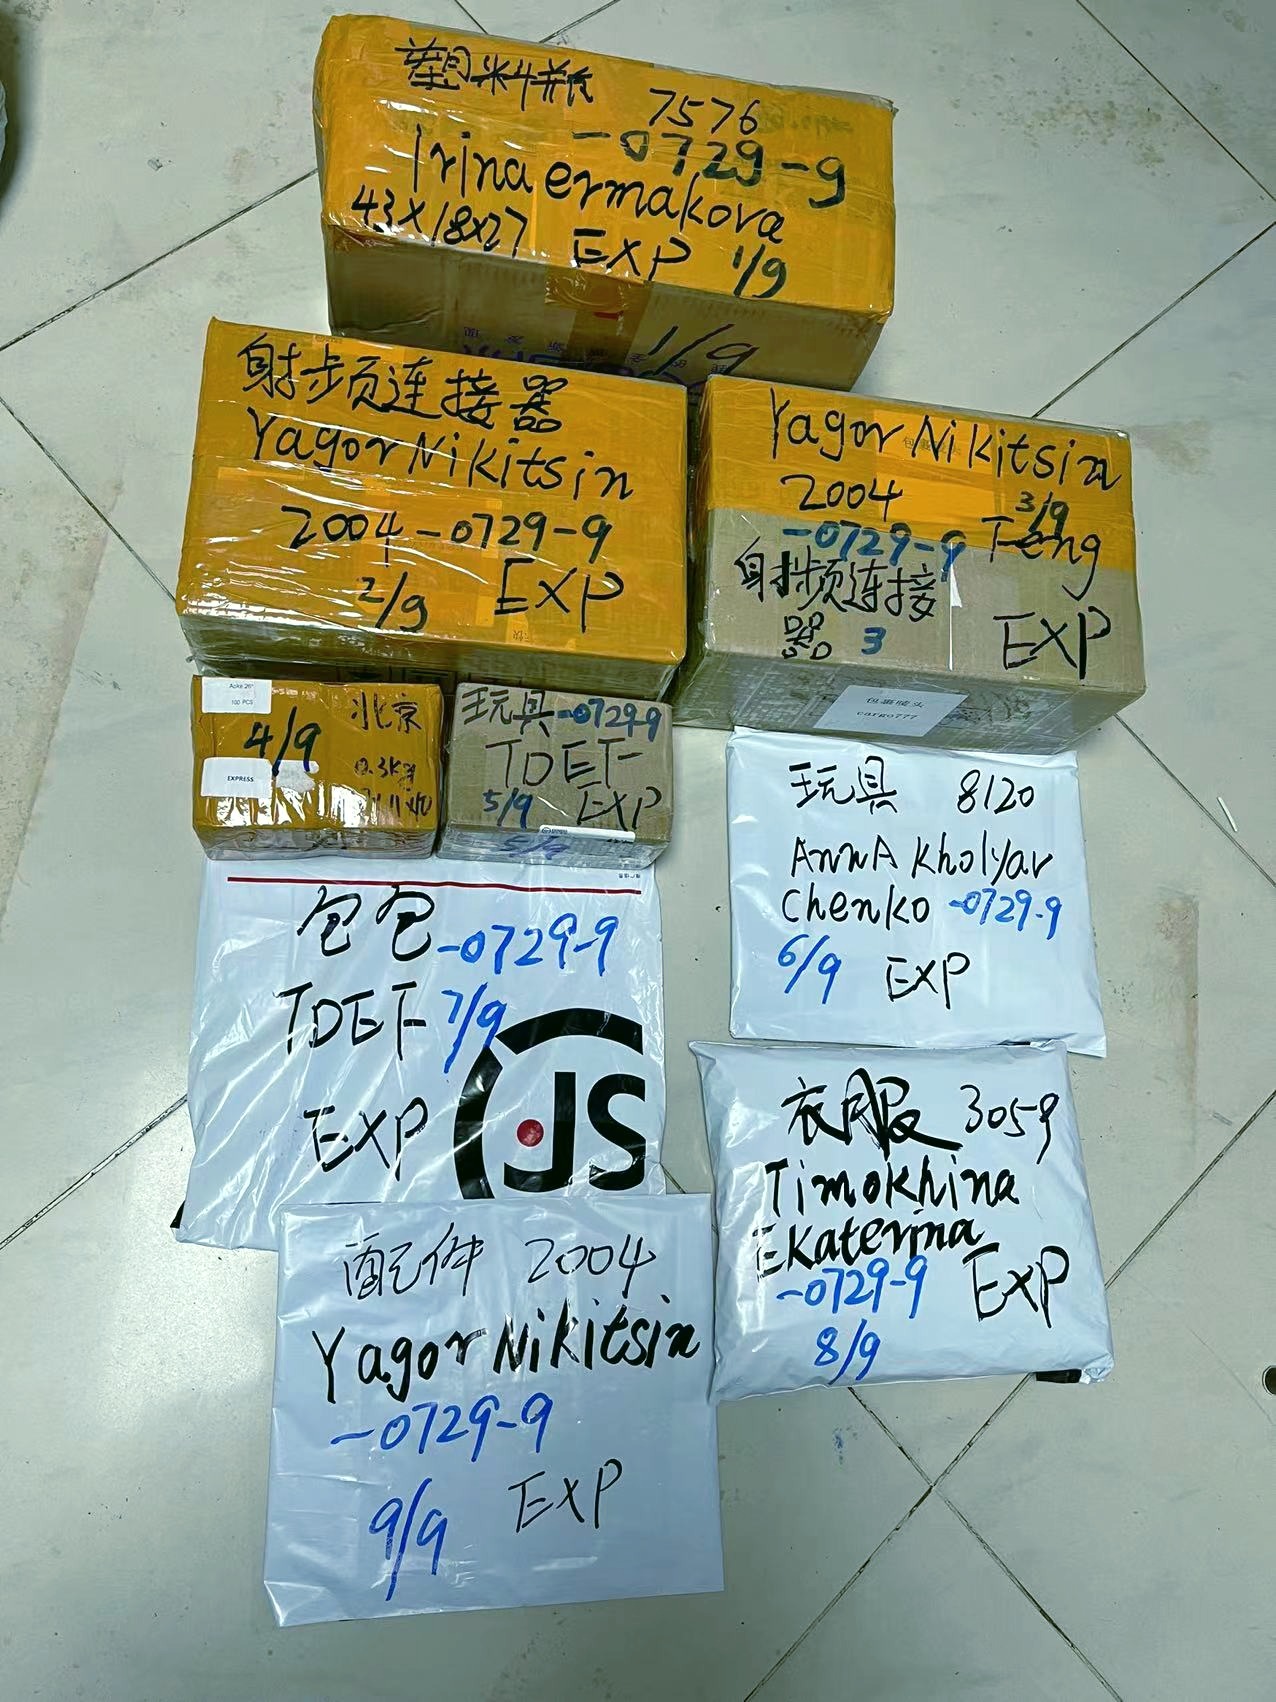 塑料瓶
7576
-0729-9
Irina ermakova
43X18X27 EXP 1/9
1/9
射频连接器
Yagor Nikitsin
2004-0729-9
2/9 EXP
Yagor Nikitsin
2004 3/9
-0729-9 Feng
射频连接
器 3 EXP
包裹唛头
cargo777
Aoke 26"
100 PCS
4/9 北京
EXPRESS
0.3Kg
玩具-0729-9
TDEF
5/9 EXP
5/9
玩具 8120
AnnA Kholyar
Chenko -0729-9
6/9 EXP
包包-0729-9
TDEF 7/9
EXP
衣服 3059
Timokhina
Ekaterina
-0729-9 EXP
8/9
配件 2004
Yagor Nikitsin
-0729-9
9/9 EXP